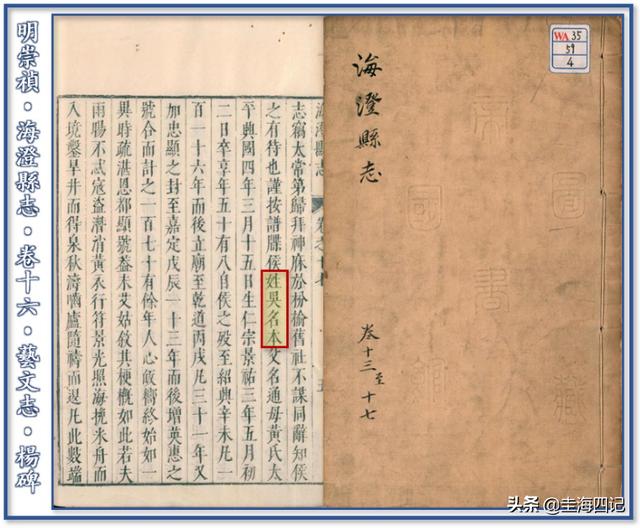 明崇禎·海澄縣志·卷十六·藝文志·楊碑
海澄縣志 卷之十七 五
志竊太常第歸拜神庥於枌榆舊社不謀同辭知侯
之有待也謹按譜牒侯姓吳名本父名通母黃氏太
平興國四年三月十五日生仁宗景祐三年五月初
二日卒享年五十有八自侯之歿至紹興辛未凡一
百一十六年而後立廟至乾道丙戌凡三十一年又
加忠顯之封至嘉定戊辰一十三年而後增英惠之
號合而計之一百七十有餘年人心皈嚮終始如一
異時疏湛恩都顯號益未艾姑敘其梗概如此若夫
雨暘不忒寇盜潛消黃衣行符景光照海挽米舟而
入境鑿旱井而得泉秋濤嚙廬隨禱而退凡此數端
海澄縣志
卷十三至十七
WA 35
59
4
头条 @圭海四记